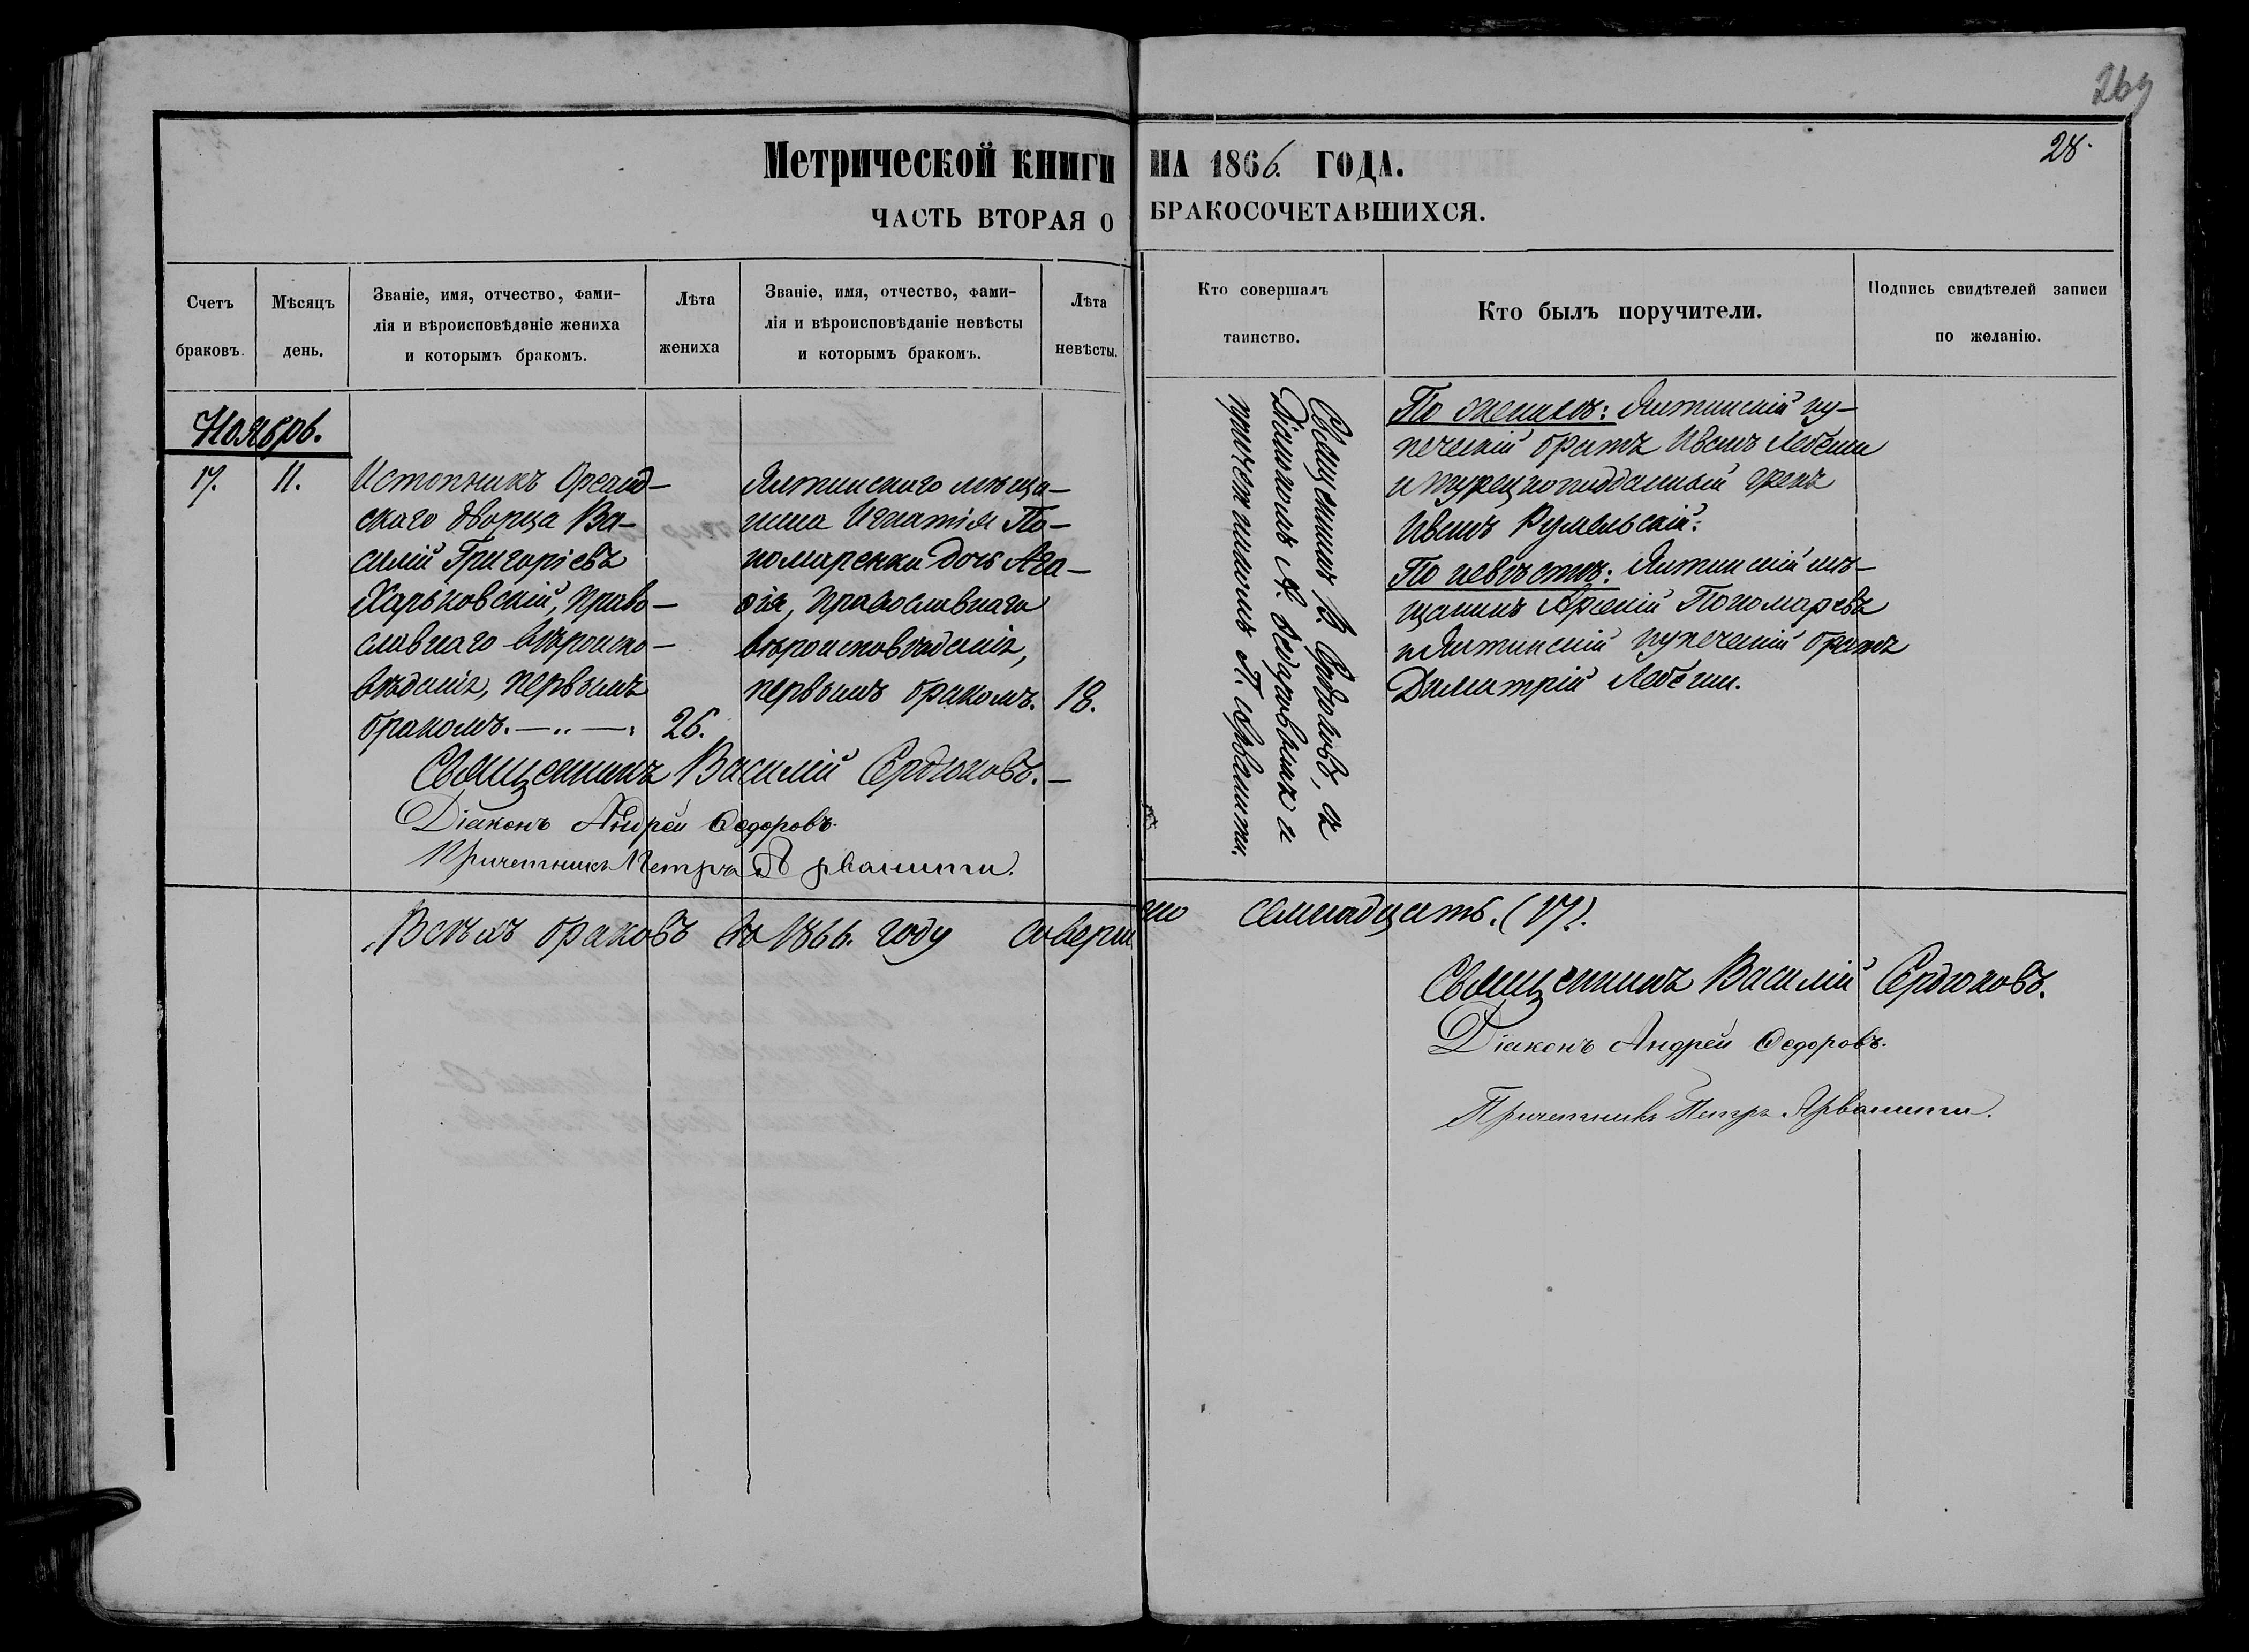 269
28.
Метрической книги на 1866. года.
часть вторая о бракосочетавшихся.
Счетъ браковъ.
Мѣсяцъ день.
Званіе, имя, отчество, фами-
лія и вѣроисповѣданіе жениха
и которымъ бракомъ.
Лѣта жениха
Званіе, имя, отчество, фами-
лія и вѣроисповѣданіе невѣсты
и которымъ бракомъ.
Лѣта невѣсты.
Кто совершалъ
таинство.
Кто былъ поручители.
Подпись свидѣтелей записи
по желанію.
Ноябрь.
17.
11.
Истопникъ Ореанд-
скаго дворца Ва-
силій Григоріевъ
Харьковскій, право-
славнаго вѣроиспо-
вѣданія, первымъ
бракомъ.
26.
Ялтинскаго мѣща-
нина Игнатія По-
номаренки дочь Ага-
ѳія, православнаго
вѣроисповѣданія,
первымъ бракомъ.
18.
Священникъ В. Сердюковъ, съ
Діакономъ А. Ѳедоровымъ и
причетникомъ П. Арванити.
По женихѣ: Ялтинскій ку-
печескій братъ Иванъ
и турецкоподданный грекъ
Иванъ
По невѣстѣ: Ялтинскій мѣ-
щанинъ Арсеній Пономаревъ
и Ялтинскій купеческій братъ
Димитрій
Священникъ Василій Сердюковъ.
Діаконъ Андрей Ѳедоровъ.
Причетникъ Петръ Арванити.
Всѣхъ браковъ въ 1866. году совершено семнадцать. (17).
Священникъ Василій Сердюковъ.
Діаконъ Андрей Ѳедоровъ.
Причетникъ Петръ Арванити.